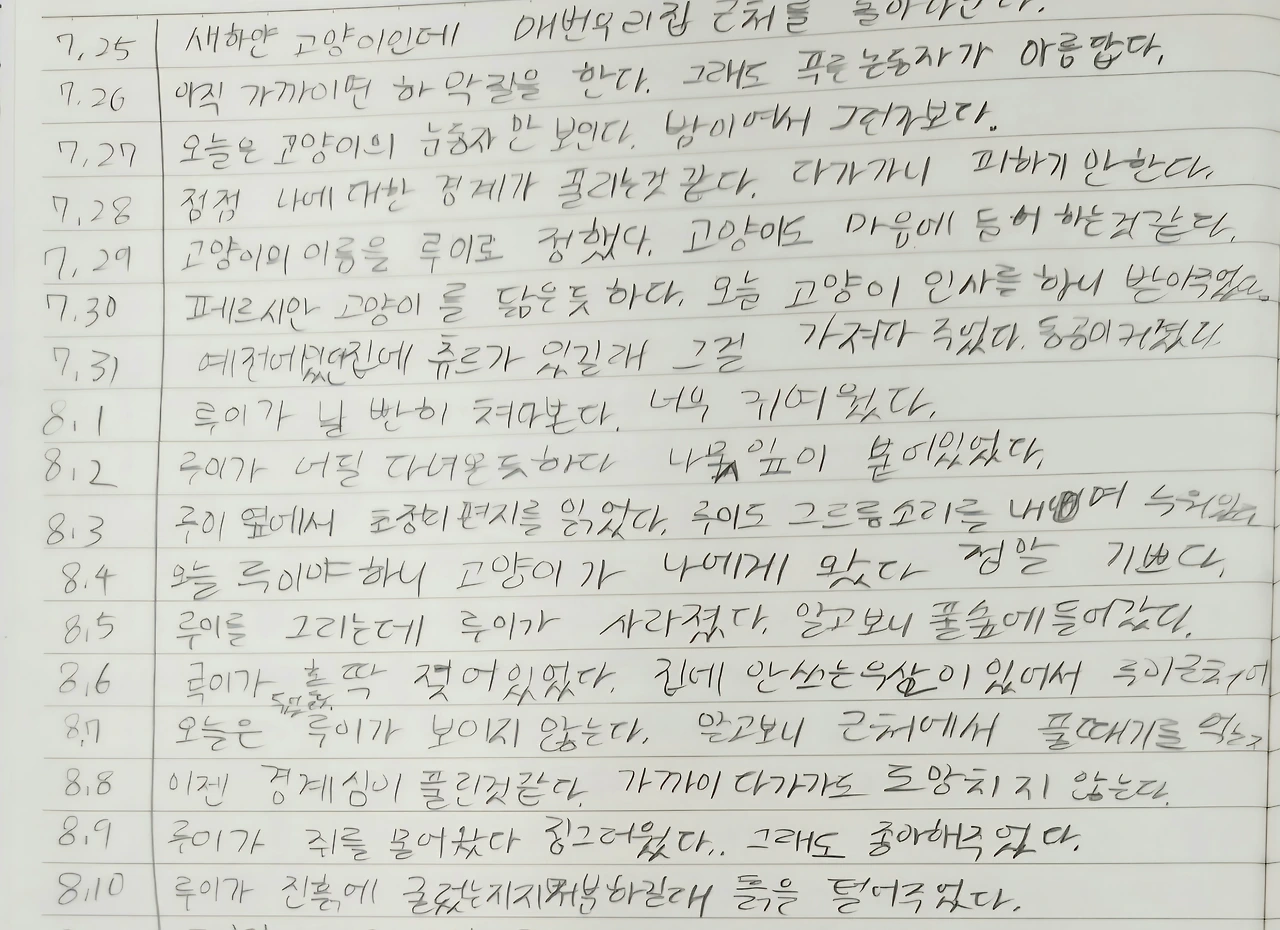 7.25 새하얀 고양이인데 매번우리집 근처를 돌아다닌다.
7.26 아직 가까이면 하악질을 한다. 그래도 푸른눈동자가 아름답다.
7.27 오늘은 고양이의 눈동자만 보인다. 밤이여서 그런가보다.
7.28 점점 나에대한 경계가 풀리는것 같다. 다가가니 피하기 안한다.
7.29 고양이의 이름을 루이로 정했다. 고양이도 마음에 들어 하는것같다.
7.30 페르시안 고양이를 닮은듯 하다. 오늘 고양이 인사를 하니 받아주었다.
7.31 예전에 집에 츄르가 있길래 그걸 가져다 주었다. 동공이커졌다.
8.1 루이가 날 빤히 쳐다본다. 너무 귀여웠다.
8.2 루이가 어딜 다녀온듯하다 나뭇잎이 붙어있었다.
8.3 루이 옆에서 초장티편지를 읽었다. 루이도 그르릉소리를 내며 누워있다
8.4 오늘 루이야하니 고양이가 나에게 왔다 정말 기쁘다.
8.5 루이를 그리는데 루이가 사라졌다. 알고보니 풀숲에들어갔다.
8.6 루이가 홀딱 젖어있었다. 집에 안쓰는우산이 있어서 루이근처에
8.7 오늘은 루이가 보이지 않는다. 알고보니 근처에서 풀때기를 먹는
8.8 이젠 경계심이 풀린것같다. 가까이다가가도 도망치지 않는다.
8.9 루이가 쥐를 물어왔다 징그러웠다.. 그래도 좋아해주었다.
8.10 루이가 진흙에 굴렀는지지저분하길래 흙을 털어주었다.